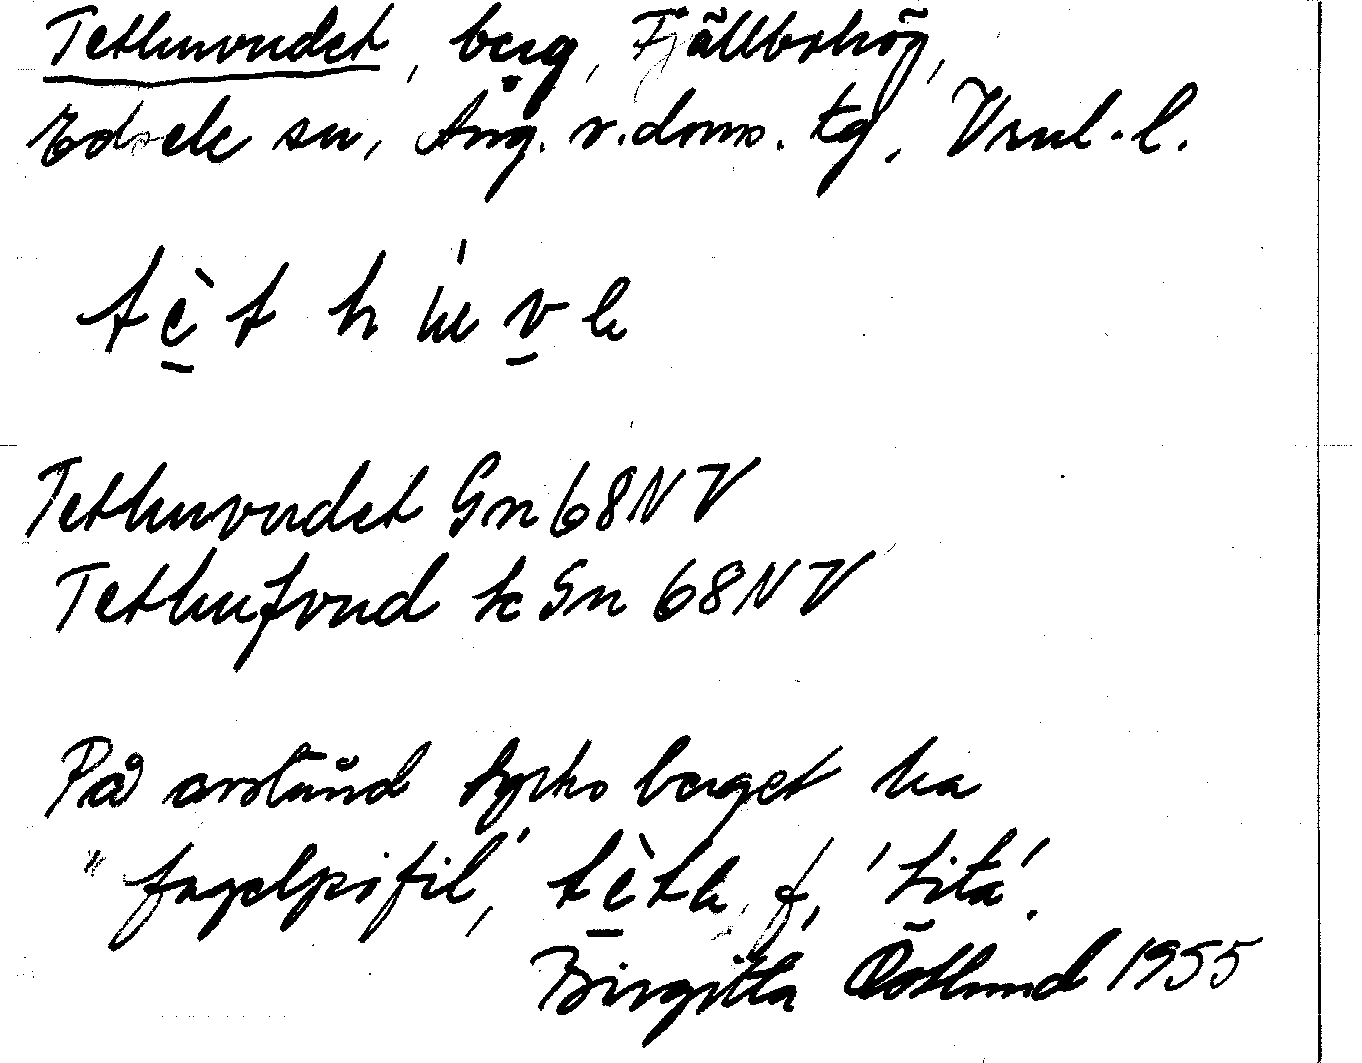 Tethuvudet, berg, Fjällbohög,
Edsele sn, Ång. v. doms. tg, Vsnl. l.
tèt húve
Tethuvudet Gn 68NV
Tethufvud k Gn 68NV
På avstånd tycks berget ha
"fågelprofil", tèta, f, 'tita'.
Birgitta Östlund 1955